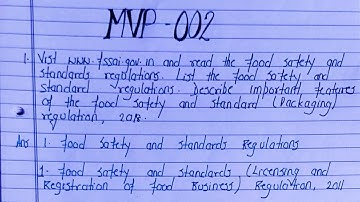 MVP-002
1. Vist www.fssai.gov.in and read the food safety and
standards regulations. List the food safety and
standard regulations. Describe important features
of the food safety and standard (Packaging)
regulation, 2018.
Ans 1. Food Safety and standards Regulations
1. Food safety and standards (Licensing and
Registration of food Business) Regulation, 2011